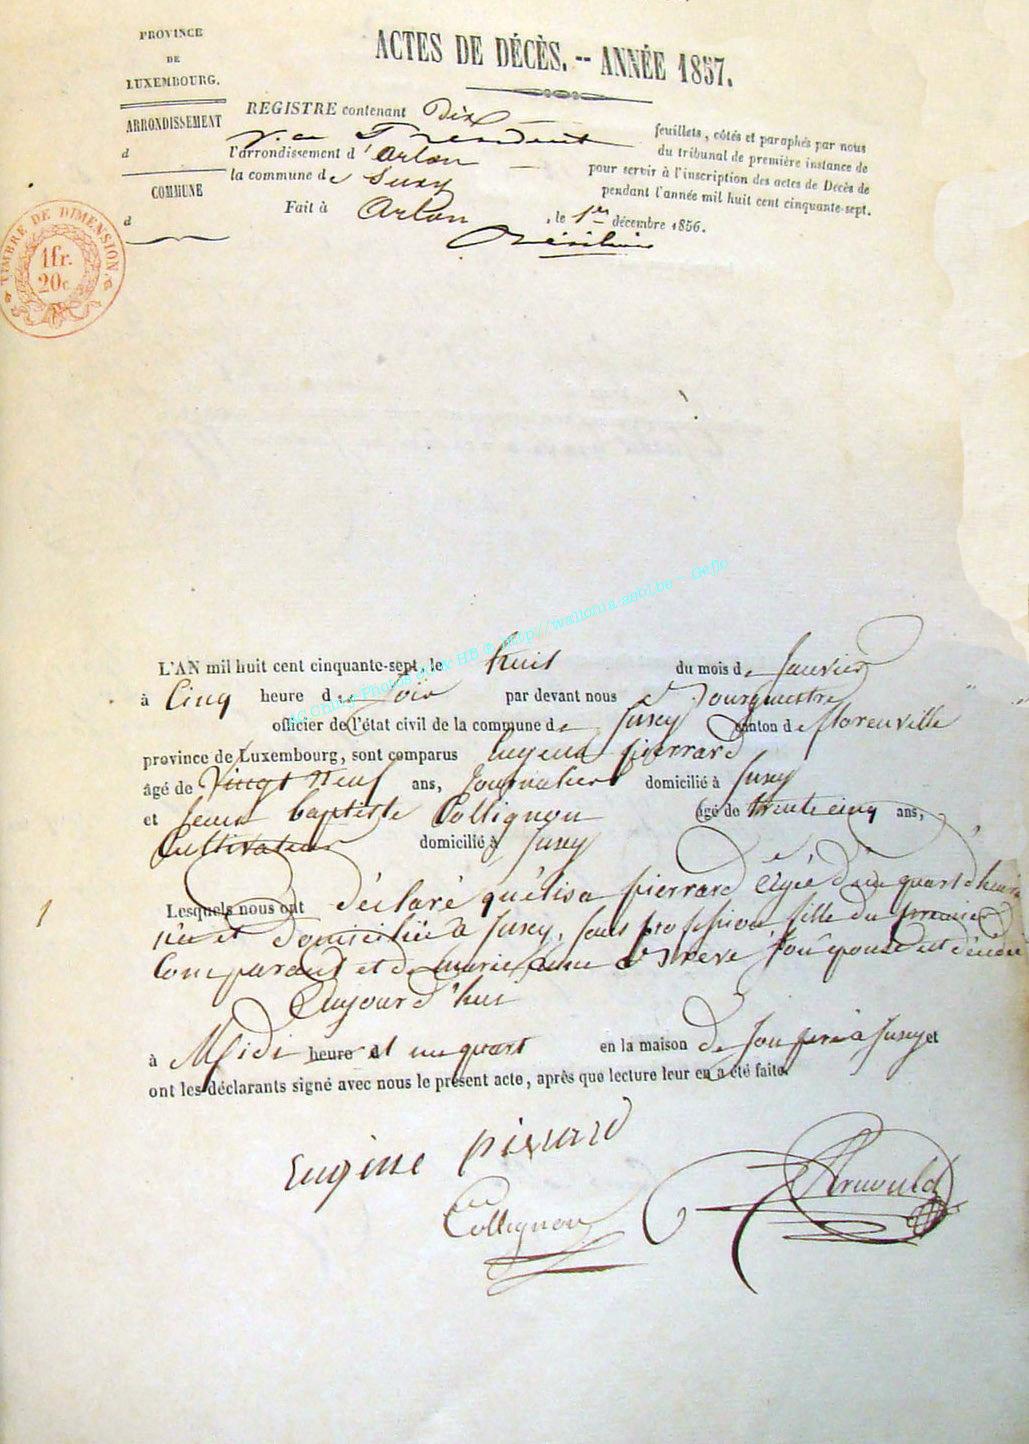 PROVINCE
DE
LUXEMBOURG.
ARRONDISSEMENT
d
COMMUNE
d
TIMBRE DE DIMENSION.
1fr.
20c.
ACTES DE DÉCÈS. -- ANNÉE 1857.
REGISTRE contenant Dix feuillets, côtés et paraphés par nous
vice Président du tribunal de première instance de
l'arrondissement d'Arlon pour servir à l'inscription des actes de Décès de
la commune de Suxy pendant l'année mil huit cent cinquante-sept.
Fait à Arlon, le 1er décembre 1856.
L'AN mil huit cent cinquante-sept, le huit du mois de Janvier
à Cinq heure de Soir par devant nous Bourgmestre
officier de l'état civil de la commune de Suxy canton de florenville
province de Luxembourg, sont comparus Eugene pierrard
âgé de Vingt neuf ans, Journalier domicilié à Suxy
et Jean baptiste Collignon âgé de trente cinq ans,
Cultivateur domicilié à Suxy
Lesquels nous ont déclaré qu'élisa pierrard Agée d'un quart d'heure
née et domiciliée à Suxy, sans profession, fille du premier
Comparant et de marie son épouse est décédé
Aujourd'hui
à Midi heure et un quart en la maison de son père à Suxy et
ont les déclarants signé avec nous le présent acte, après que lecture leur en a été faite.
1
Eugène pierard
Collignon
Arnould
http://wallonia.asbl.be - Geflo